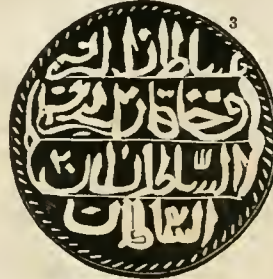 3
سلطان البرين
وخاقان البحرين
السلطان بن
السلطان